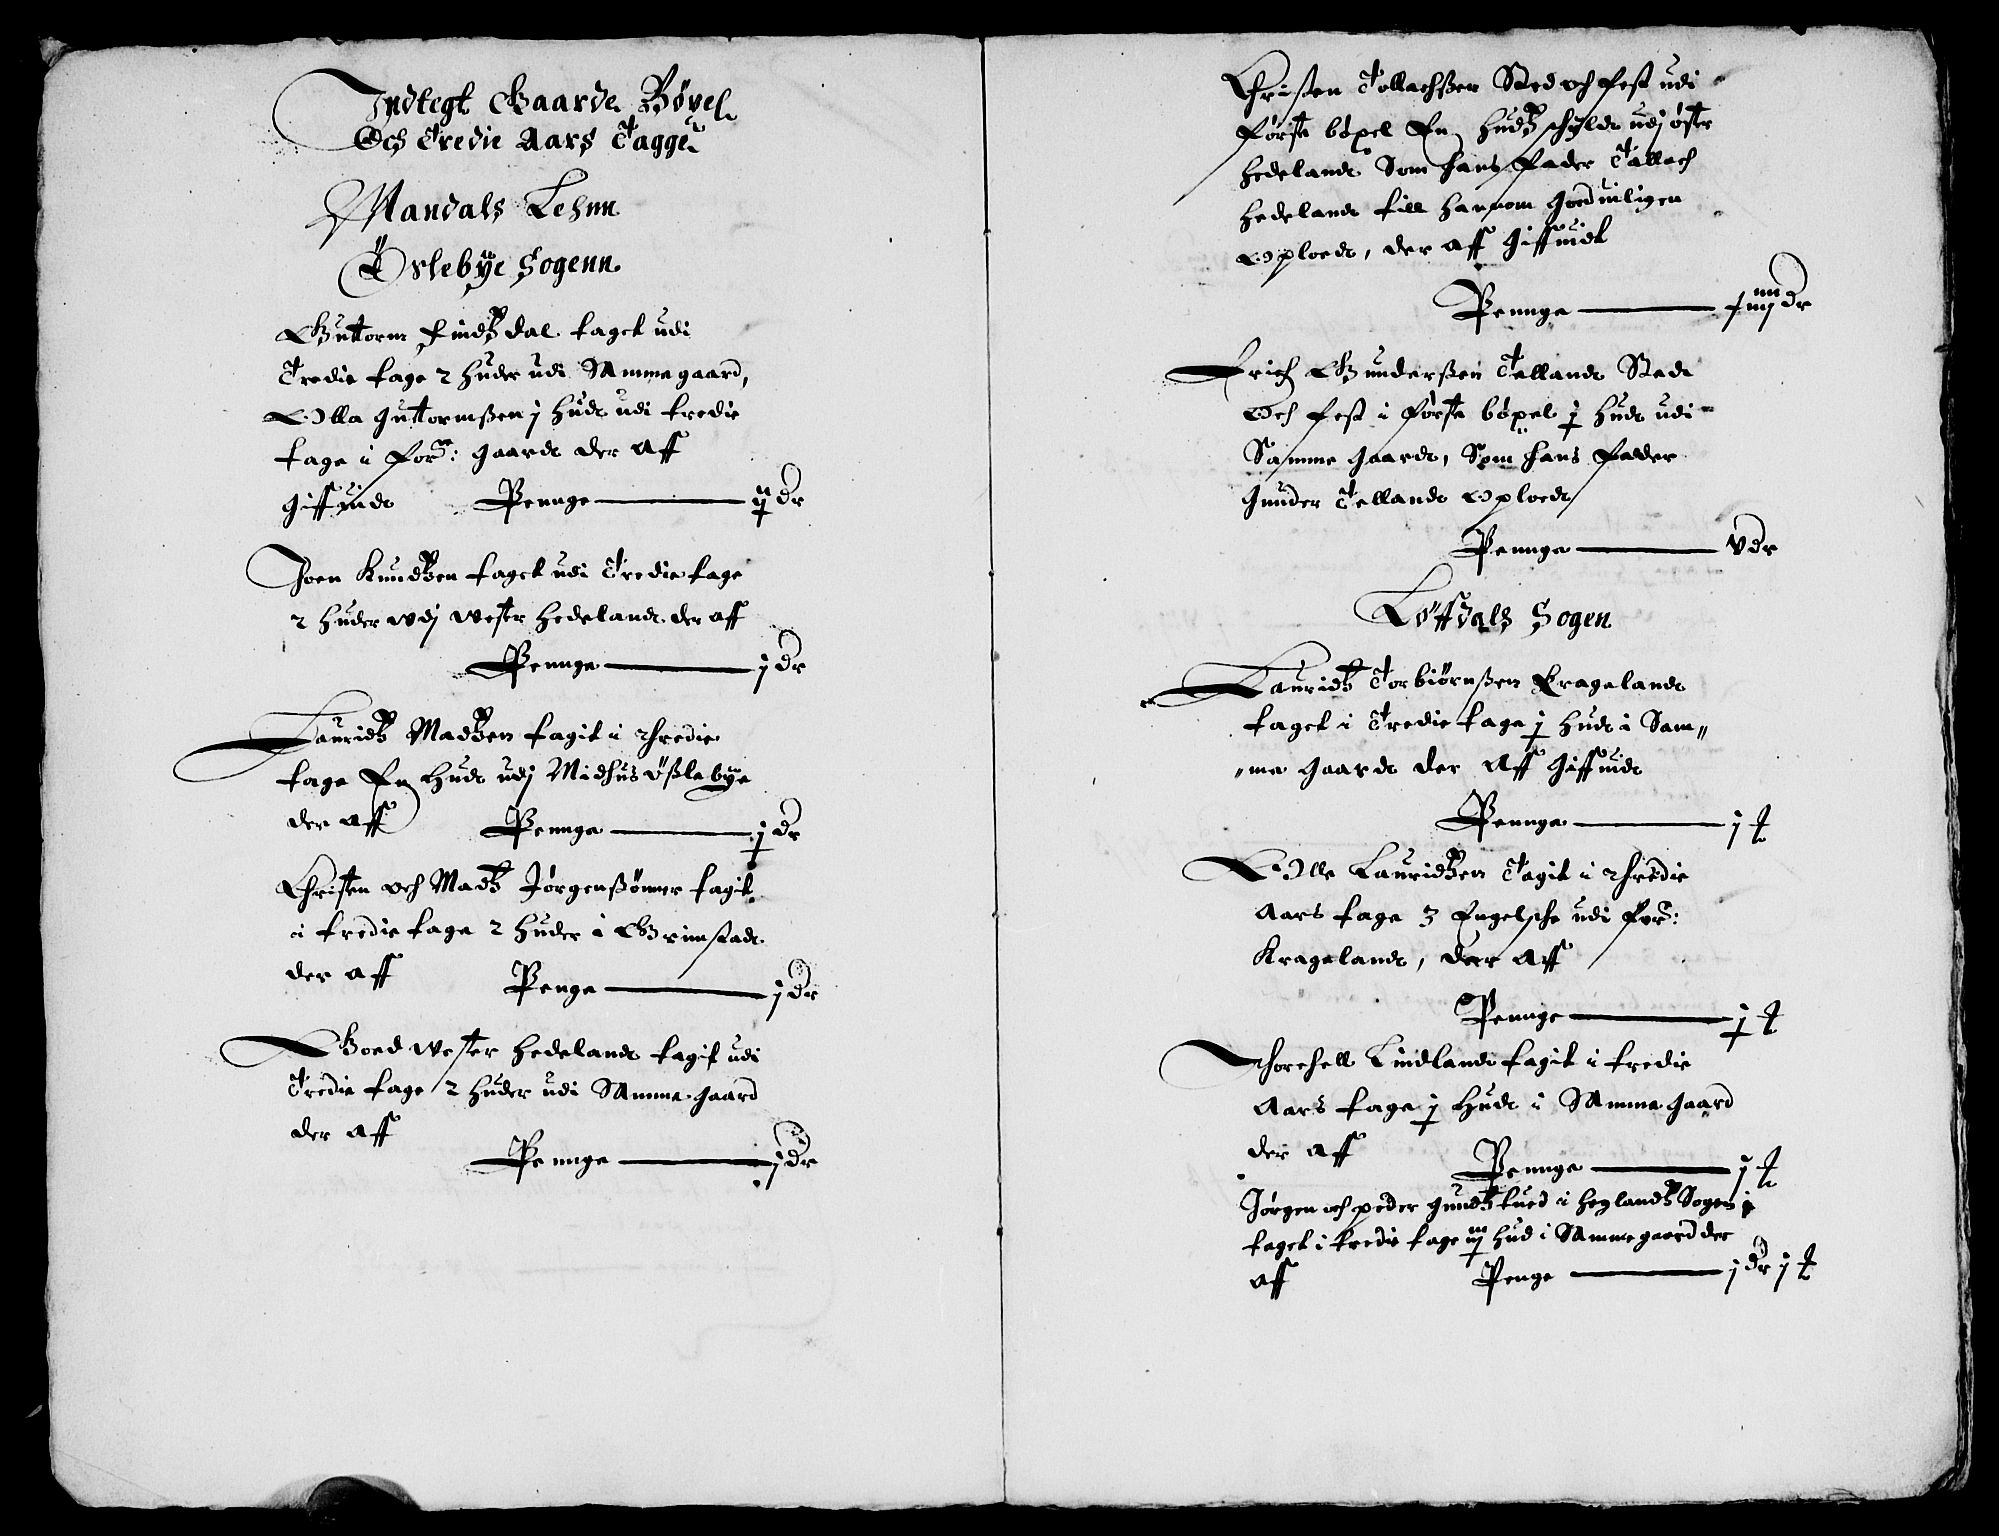 Indtegt Gaarde Bøxel
Och Tredie Aars Tagge
Mandals Lehnn
Öslebÿe Sogenn
Guttorm Findtzdal taget udi
Tredie tage 2 huder udi Samme gaard,
Olla Guttormßen j hudt udi tredie
tage i for: gaardt der Aff
Giffuidt Pennge dr
Joen Knudtzen taget udi Tredie tage
2 huder wdj wester hedelandt der aff
Pennge j dr
Lauridtz Madtzen tagit i thredie
tage En hudt udj Midhus ößlebÿe
der Aff Pennge j dr
Christen och Madtz Jørgenßønner tagit
i tredie tage 2 huder i Grimstadt
der Aff Penge j dr
Goed wester hedelandt tagit udi
Tredie tage 2 huder udi Samme gaard
der Aff
Pennge j dr
Christen Tollachßen Sted och fest udi
første böxel En hudtz schyldt udj öster
hedelandt Som hans fader Tallach
hedelandt till hannom goeduiligen
Oploedt, der Aff Giffuidt
Pennge dr
Erich Gunderßen Tellandt Stedt
Och fest i første böxel j hudt udi
Samme gaardt, Som hans fader
Gunder Tellandt Oploedt
Pennge v dr
Löffdals Sogen
Lauridtz Torbiörnßen Kragelandt
taget i Tredie tage j hudt i Sam„
„me gaardt der Aff Giffuidt
Pennge j
Olle Lauridtzen Tagit i thredie
Aars tage 3 Engelsche udi for:
Kragelandt, der Aff
Pennge j
Thorchell Lindlandt tagit i tredie
Aars tage j hudt i Samme gaard
der Aff
Pennge j
Jørgen och peder i heglandtz Sogen
taget i tredie tage hud i Samme gaard der
Aff Penge j dr j